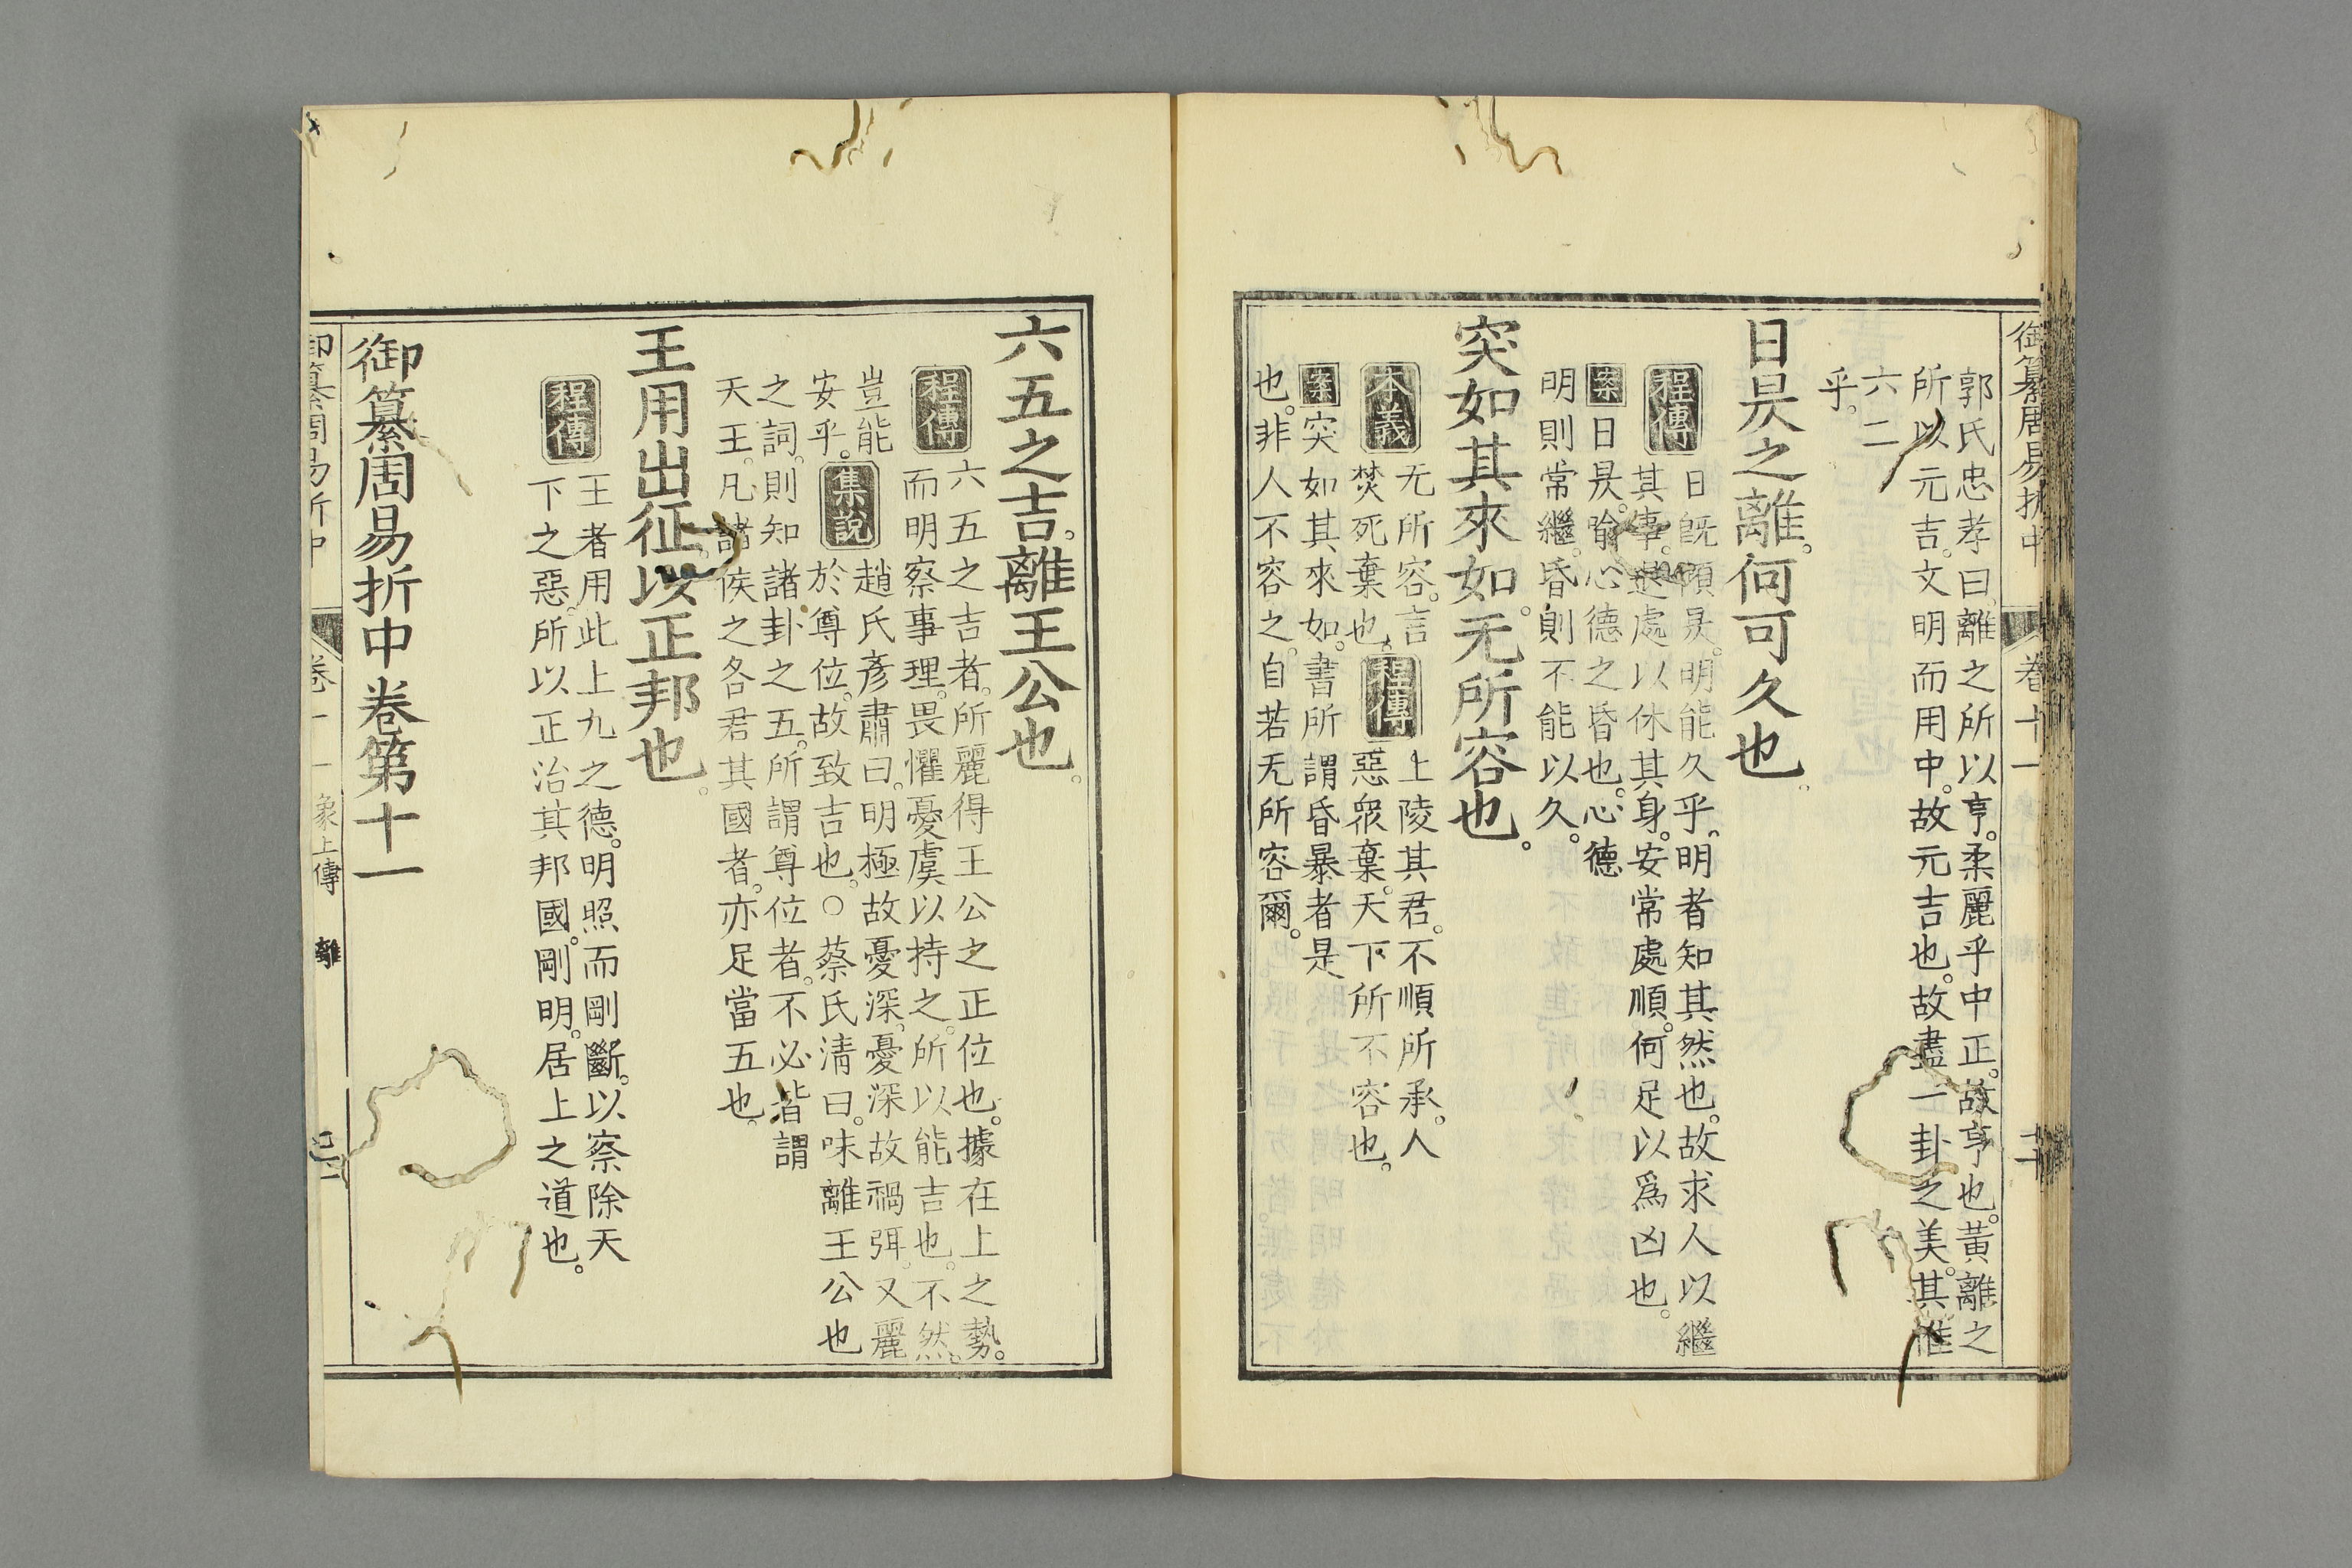 御纂周易折中 卷十一
郭氏忠孝曰。離之所以亨。柔麗乎中正。故亨也。黃離之
所以元吉。文明而用中。故元吉也。故盡一卦之美。其惟
六二
乎。
日昃之離。何可久也。
程傳 日旣傾昃。明能久乎。明者知其然也。故求人以繼
其事。退處以休其身。安常處順。何足以爲凶也。
案 日昃。喻心德之昏也。心德
明則常繼。昏則不能以久。
突如其來如。无所容也。
本義 无所容。言
焚死棄也。
程傳 上陵其君。不順所承。人
惡衆棄。天下所不容也。
案 突如其來如。書所謂昏暴者是
也。非人不容之。自若无所容爾。
六五之吉。離王公也。
程傳 六五之吉者。所麗得王公之正位也。據在上之勢。
而明察事理。畏懼憂虞以持之。所以能吉也。不然。
豈能
安乎。
集說 趙氏彥肅曰。明極故憂深。憂深故禍弭。又麗
於尊位。故致吉也。○蔡氏淸曰。味離王公也
之詞。則知諸卦之五。所謂尊位者。不必皆謂
天王。凡諸侯之各君其國者。亦足當五也。
王用出征。以正邦也。
程傳 王者用此上九之德。明照而剛斷。以察除天
下之惡。所以正治其邦國。剛明。居上之道也。
御纂周易折中卷第十一
御纂周易折中 卷十一 象上傳 離